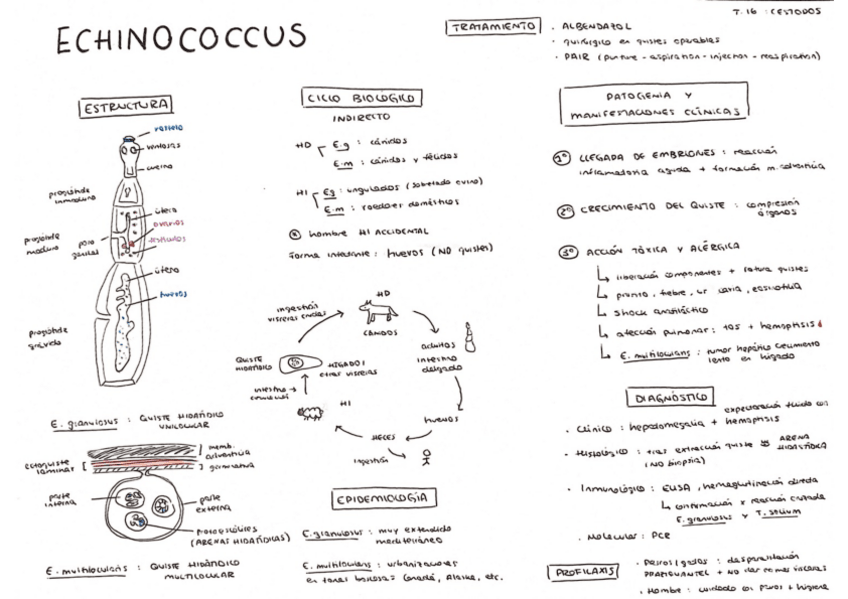 T.16 : CESTODOS
ECHINOCOCCUS
TRATAMIENTO
· ALBENDAZOL
· quirúrgico en quistes operables
· PAIR (punture - aspiration - injection - reaspiration)
ESTRUCTURA
rostelo
ventosas
cuello
proglótide
inmaduro
útero
ovarios
testículos
proglótide
maduro
poro
genital
útero
huevos
proglótide
grávido
E. granulosus : QUISTE HIDATÍDICO
UNILOCULAR
memb.
adventicia
germinativa
ectoquiste
laminar
parte
interna
parte
externa
protoescólices
(ARENAS HIDATÍDICAS)
E. multilocularis : QUISTE HIDATÍDICO
MULTILOCULAR
CICLO BIOLÓGICO
INDIRECTO
HD
E.g : cánidos
E.m : cánidos y félidos
HI
E.g : ungulados (sobretodo ovino)
E.m : roedores domésticos
hombre HI ACCIDENTAL
forma infestante : huevos (NO quistes)
ingestión
vísceras crudas
HD
CÁNIDOS
adultos
intestino
delgado
huevos
HECES
ingestión
HI
intestino →
QUISTE
HIDATÍDICO
HÍGADO /
otras vísceras
EPIDEMIOLOGÍA
E. granulosus : muy extendido
mediterráneo
E. multilocularis : urbanizaciones
en zonas boscosas Canadá, Alaska, etc.
PATOGENIA Y
MANIFESTACIONES CLÍNICAS
1º LLEGADA DE EMBRIONES : reacción
inflamatoria aguda + formación m. adventicia
2º CRECIMIENTO DEL QUISTE : compresión
órganos
3º ACCIÓN TÓXICA Y ALÉRGICA
liberación componentes + rotura quistes
prurito, fiebre, urticaria, eosinofilia
shock anafiláctico
afección pulmonar : tos + hemoptisis
E. multilocularis : tumor hepático crecimiento
lento en hígado
DIAGNÓSTICO
· Clínico : hepatomegalia + hemoptisis
expectoración fluido con
· Histológico : tras extracción quiste
ARENA
HIDATÍDICA
(NO biopsia)
· Inmunológico : ELISA, hemaglutinación directa
confirmación x reacción cruzada
E. granulosus y T. solium
· Molecular : PCR
PROFILAXIS
· Perros / gatos : desparasitación
PRAZIQUANTEL + NO dar comer vísceras
· Hombre : cuidado con perros + higiene